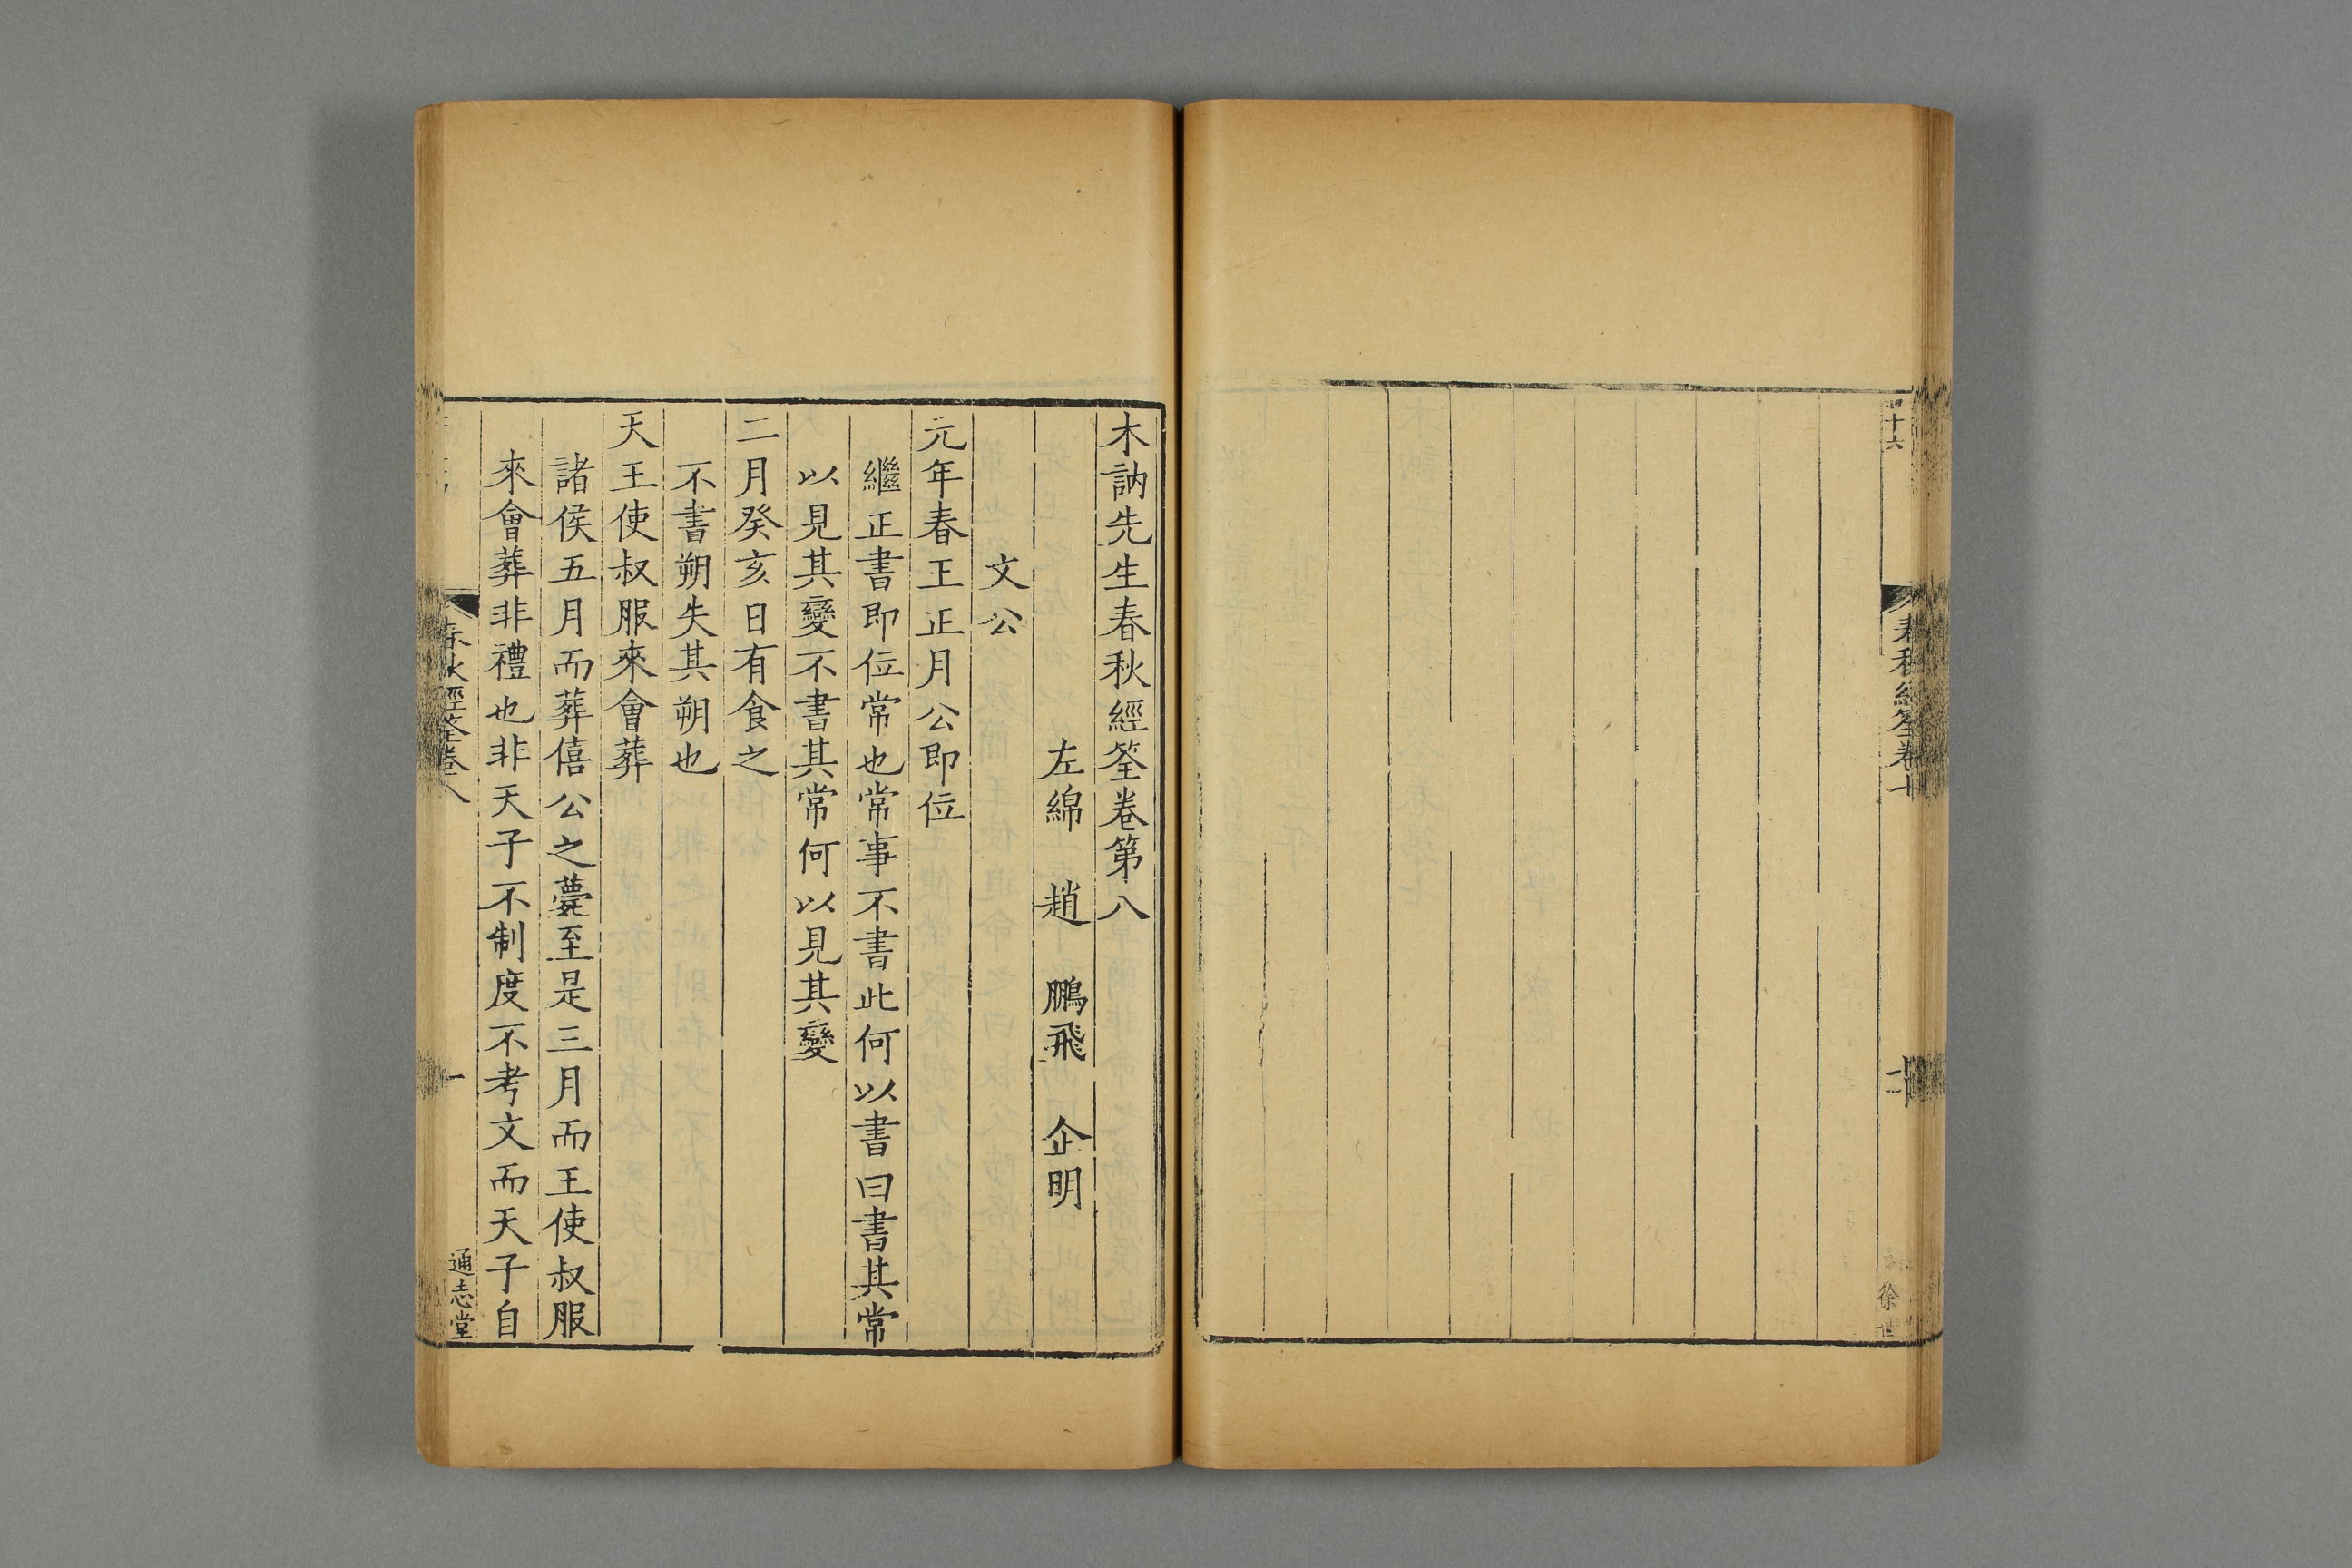 木訥先生春秋經筌卷第八
左綿 趙 鵬飛 企明
文公
元年春王正月公即位
繼正書即位常也常事不書此何以書曰書其常
以見其變不書其常何以見其變
二月癸亥日有食之
不書朔失其朔也
天王使叔服來會葬
諸侯五月而葬僖公之薨至是三月而王使叔服
來會葬非禮也非天子不制度不考文而天子自
春秋經筌卷八
一
通志堂
春秋經筌卷七
徐